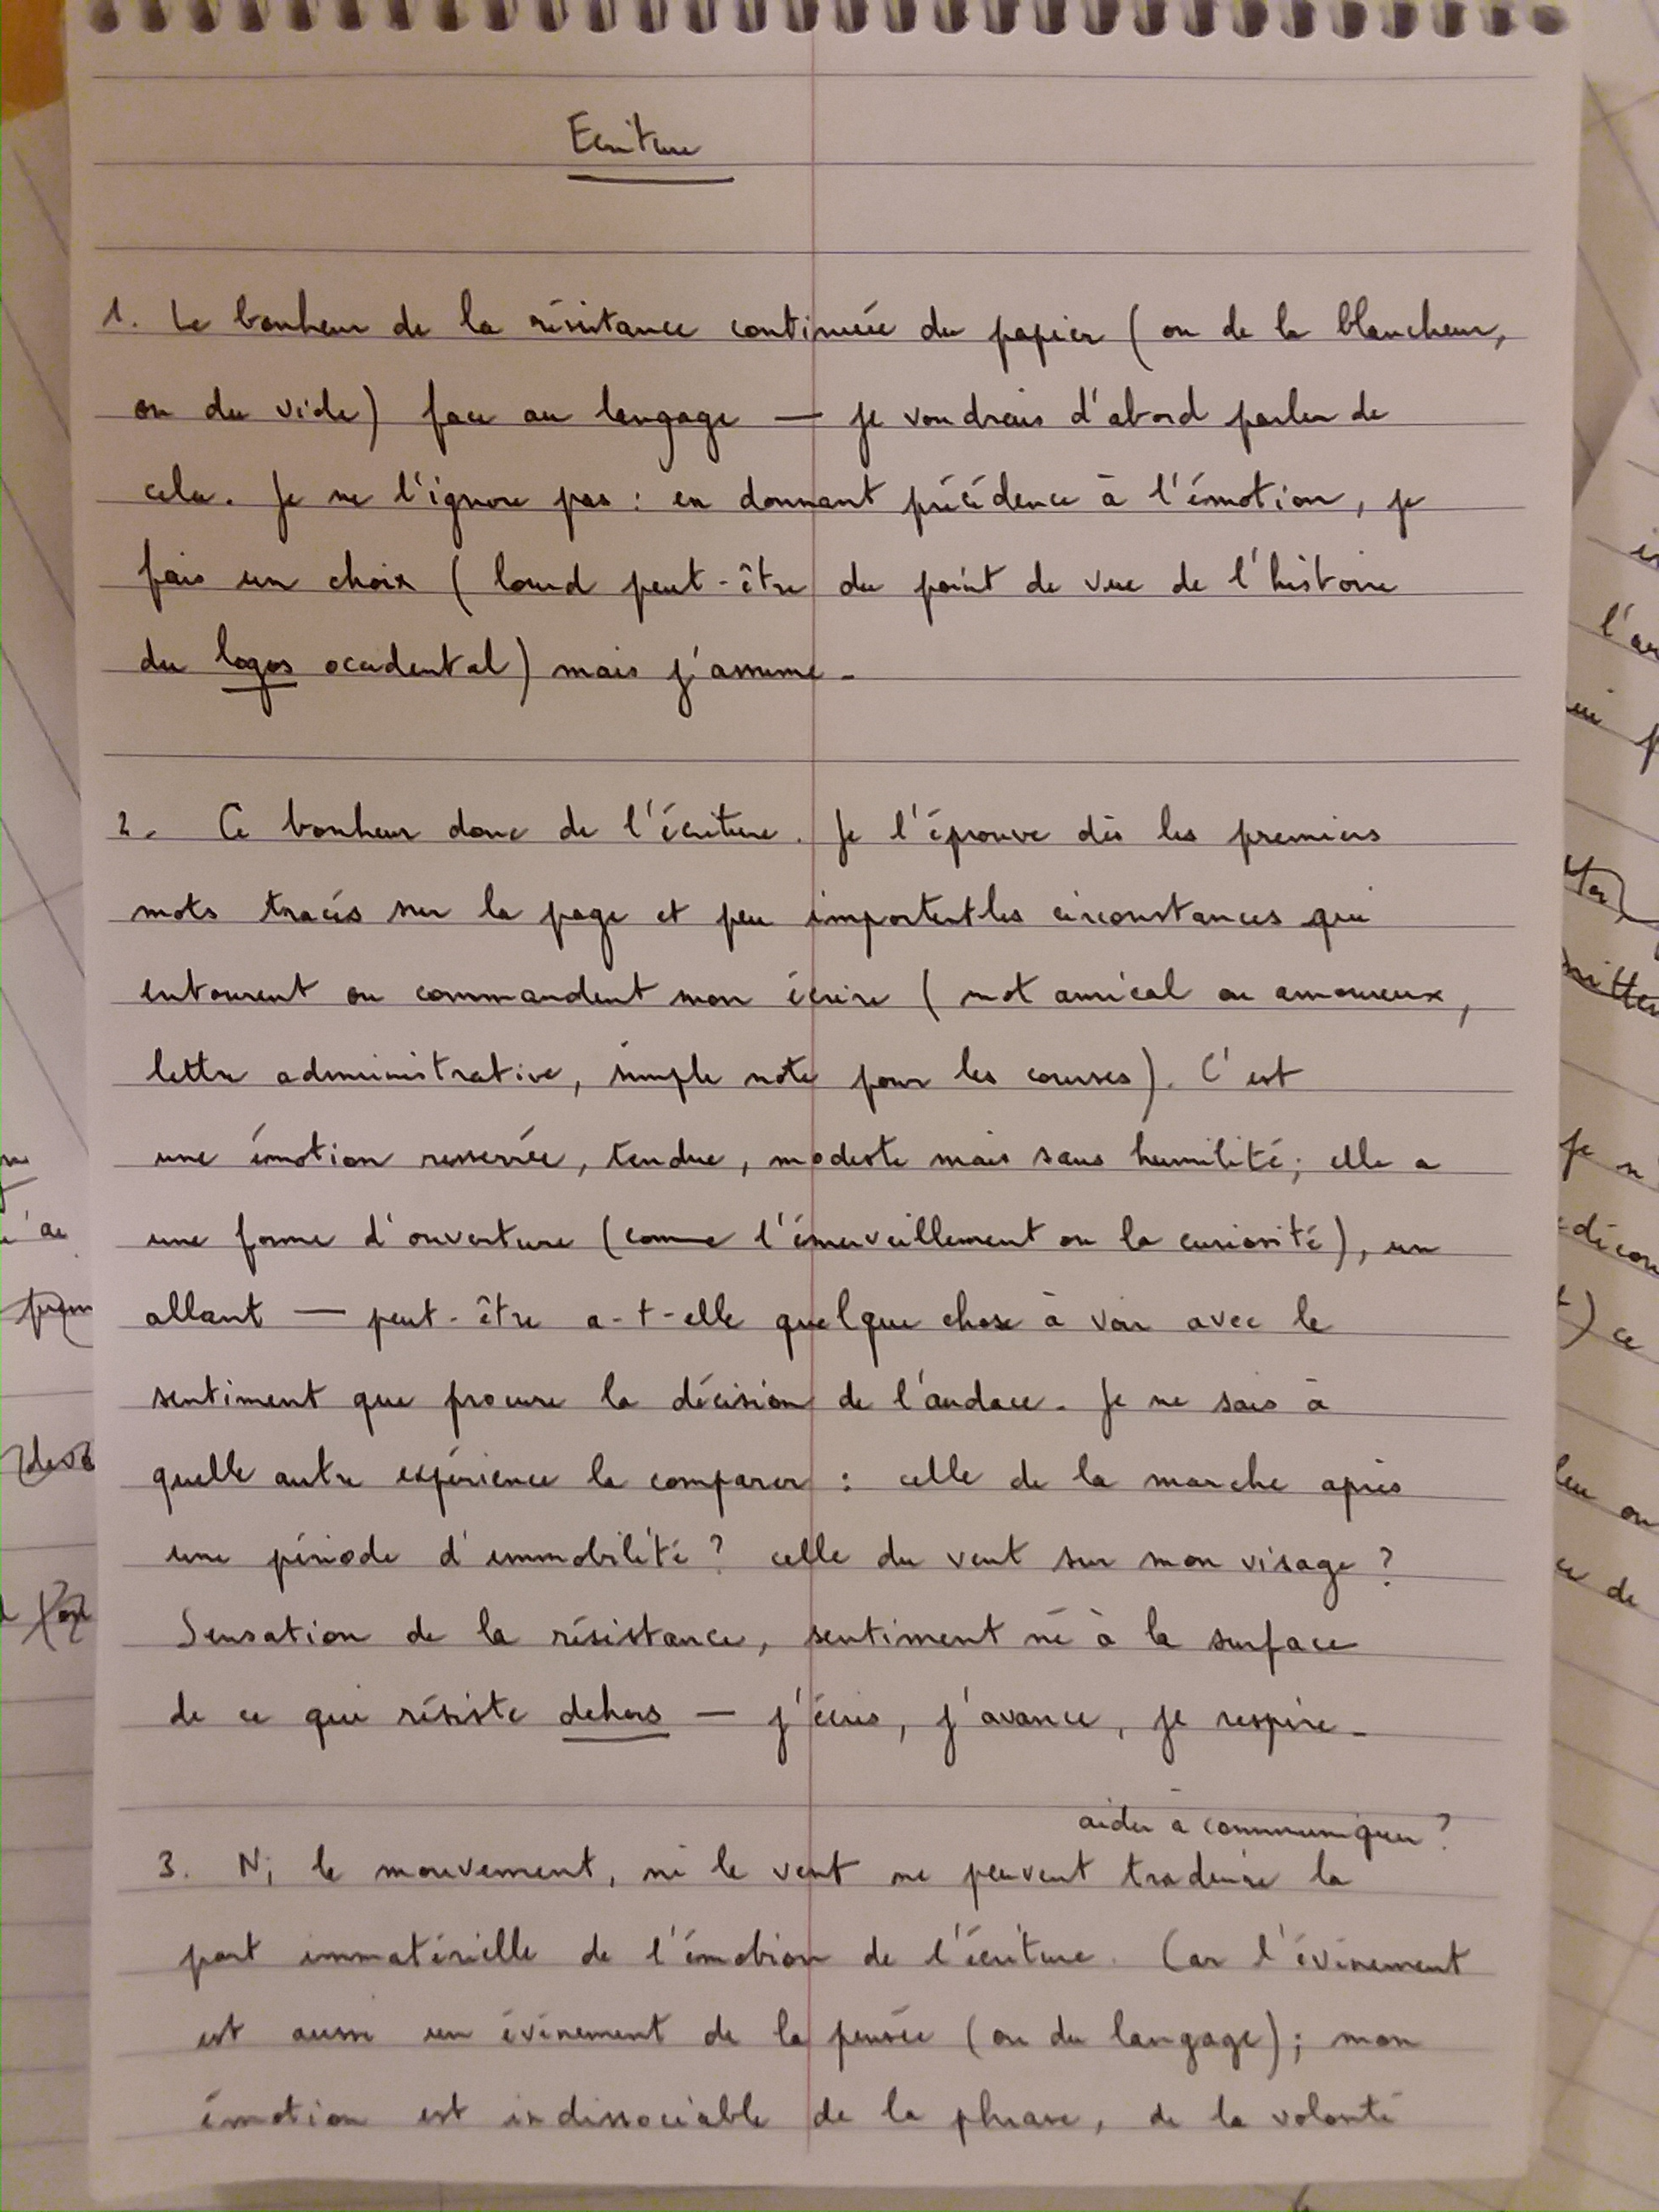 Ecriture
1. Le bonheur de la résistance continuée du papier (ou de la blancheur,
ou du vide) face au langage — je voudrais d'abord parler de
cela. Je ne l'ignore pas : en donnant précédence à l'émotion, je
fais un choix (lourd peut-être du point de vue de l'histoire
du logos occidental) mais j'assume.
2. Ce bonheur donc de l'écriture. Je l'éprouve dès les premiers
mots tracés sur la page et peu importent les circonstances qui
entourent ou commandent mon écrire (mot amical ou amoureux,
lettre administrative, simple note pour les courses). C'est
une émotion resserrée, tendue, modeste mais sans humilité ; elle a
une forme d'ouverture (comme l'émerveillement ou la curiosité), un
allant — peut-être a-t-elle quelque chose à voir avec le
sentiment que procure la décision de l'audace. Je ne sais à
quelle autre expérience la comparer : celle de la marche après
une période d'immobilité ? celle du vent sur mon visage ?
Sensation de la résistance, sentiment né à la surface
de ce qui résiste dehors — j'écris, j'avance, je respire.
aider à communiquer ?
3. Ni le mouvement, ni le vent ne peuvent traduire la
part immatérielle de l'émotion de l'écriture. Car l'événement
est aussi un événement de la pensée (ou du langage) ; mon
émotion est indissociable de la phrase, de la volonté